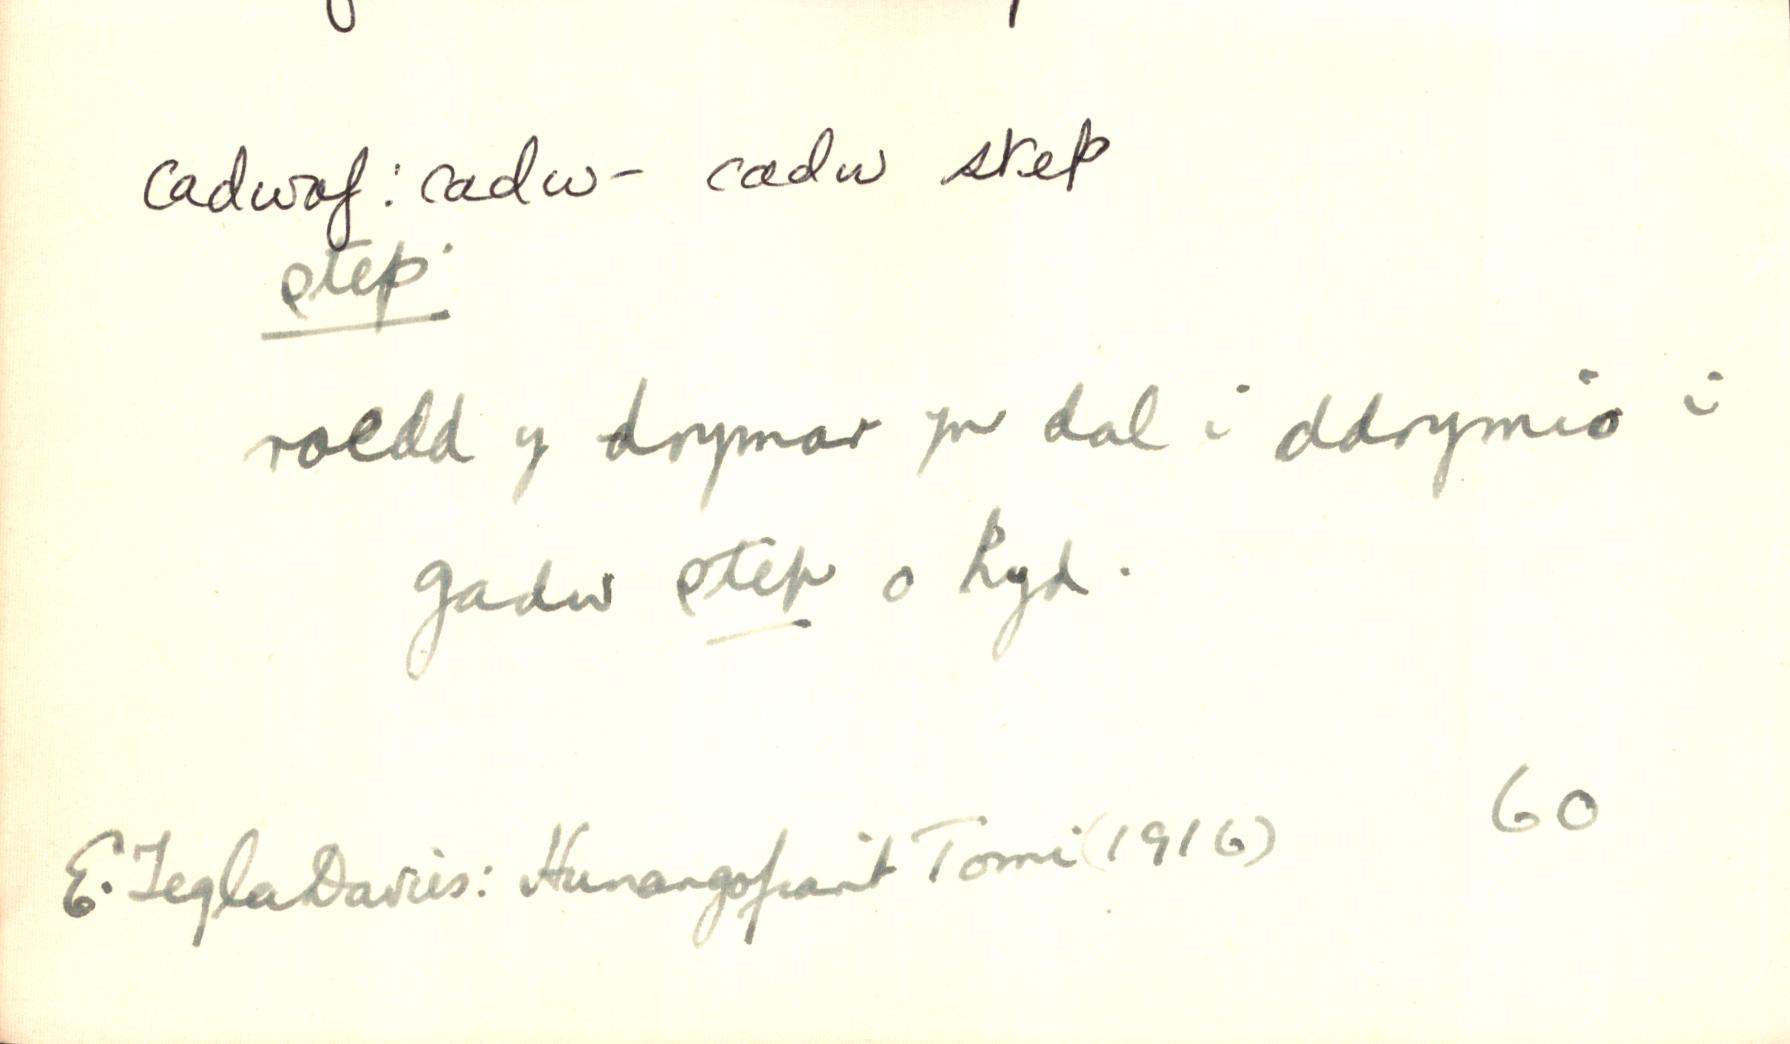 cadwaf: cadw - cadw step
step.
roedd y drymar yn dal i ddrymio i
gadw step o hyd.
60
E. Tegla Davies: Hunangofiant Tomi (1916)